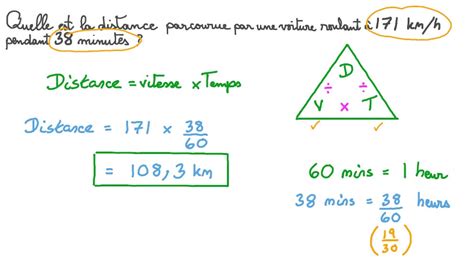 Quelle est la distance parcourue par une voiture roulant à 171 km/h
pendant 38 minutes ?
Distance = vitesse × Temps
D
÷ ÷
V × T
Distance = 171 × 38/60
= 108,3 km
60 mins = 1 heur
38 mins = 38/60 heurs
(19/30)